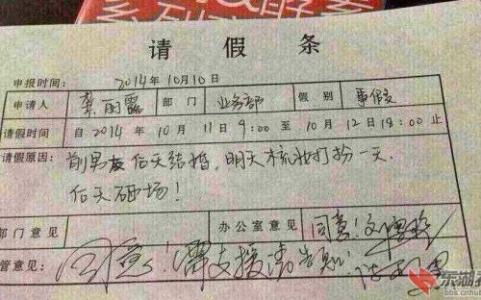 系列
请假条
申报时间: 2014年10月10日
申请人 龚丽露 部门 业务部 假别 事假
请假时间 自2014年10月11日9:00至10月12日18:00止
请假原因: 前男友后天结婚,明天梳妆打扮一天.
后天砸场!
部门意见 办公室意见 同意!
管意见: 同意!需支援请告知!
东湖
bbs.cnhubei.com